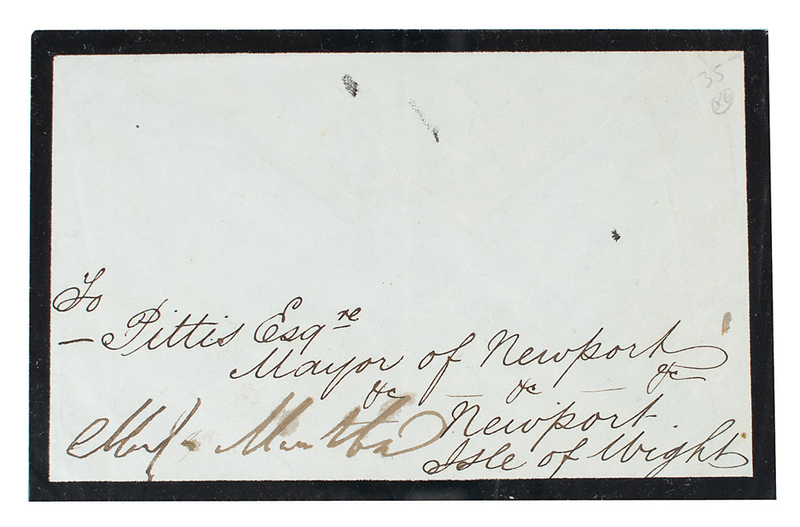 35
To
— Pittis Esqre
Mayor of Newport
&c — &c — &c
Newport
Isle of Wight